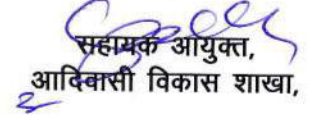 सहायक आयुक्त,
आदिवासी विकास शाखा,